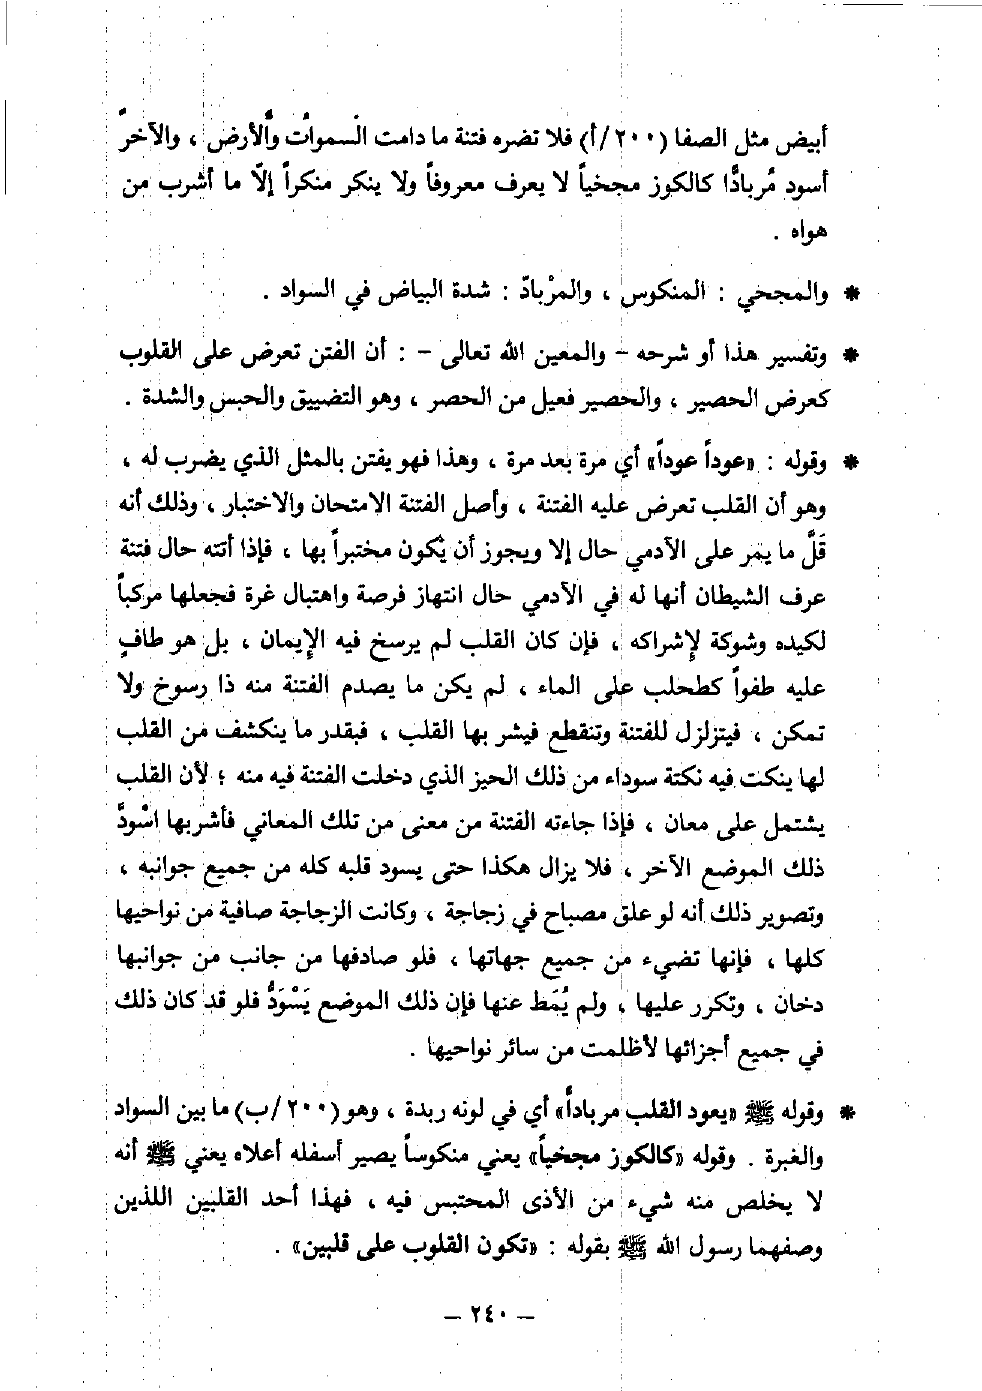 أبيض مثل الصفا (٢٠٠/أ) فلا تضره فتنة ما دامت السموات والأرض ، والآخر
أسود مُربادًّا كالكوز مجخياً لا يعرف معروفاً ولا ينكر منكراً إلّا ما أشرب من
هواه .
* والمجخي : المنكوس ، والمرْبادّ : شدة البياض في السواد .
* وتفسير هذا أو شرحه – والمعين الله تعالى – : أن الفتن تعرض على القلوب
كعرض الحصير ، والحصير فعيل من الحصر ، وهو التضييق والحبس والشدة .
* وقوله : «عوداً عوداً» أي مرة بعد مرة ، وهذا فهو يفتن بالمثل الذي يضرب له ،
وهو أن القلب تعرض عليه الفتنة ، وأصل الفتنة الامتحان والاختبار ، وذلك أنه
قَلَّ ما يمر على الآدمي حال إلا ويجوز أن يُكون مختبراً بها ، فإذا أتته حال فتنة
عرف الشيطان أنها له في الآدمي حال انتهاز فرصة واهتبال غرة فجعلها مركباً
لكيده وشوكة لإشراكه ، فإن كان القلب لم يرسخ فيه الإيمان ، بل هو طافٍ
عليه طفواً كطحلب على الماء ، لم يكن ما يصدم الفتنة منه ذا رسوخ ولا
تمكن ، فيتزلزل للفتنة وتنقطع فيشر بها القلب ، فبقدر ما ينكشف من القلب
لها ينكت فيه نكتة سوداء من ذلك الحيز الذي دخلت الفتنة فيه منه ؛ لأن القلب
يشتمل على معان ، فإذا جاءته الفتنة من معنى من تلك المعاني فأشربها اسْودَّ
ذلك الموضع الآخر ، فلا يزال هكذا حتى يسود قلبه كله من جميع جوانبه ،
وتصوير ذلك أنه لو علق مصباح في زجاجة ، وكانت الزجاجة صافية من نواحيها
كلها ، فإنها تضيء من جميع جهاتها ، فلو صادفها من جانب من جوانبها
دخان ، وتكرر عليها ، ولم يُمَط عنها فإن ذلك الموضع يَسْوَدُّ فلو قد كان ذلك
في جميع أجزائها لأظلمت من سائر نواحيها .
* وقوله ﷺ «يعود القلب مرباداً» أي في لونه ربدة ، وهو (٢٠٠/ب) ما بين السواد
والغبرة . وقوله «كالكوز مجخياً» يعني منكوساً يصير أسفله أعلاه يعني ﷺ أنه
لا يخلص منه شيء من الأذى المحتبس فيه ، فهذا أحد القلبين اللذين
وصفهما رسول الله ﷺ بقوله : «تكون القلوب على قلبين» .
– ٢٤٠ –